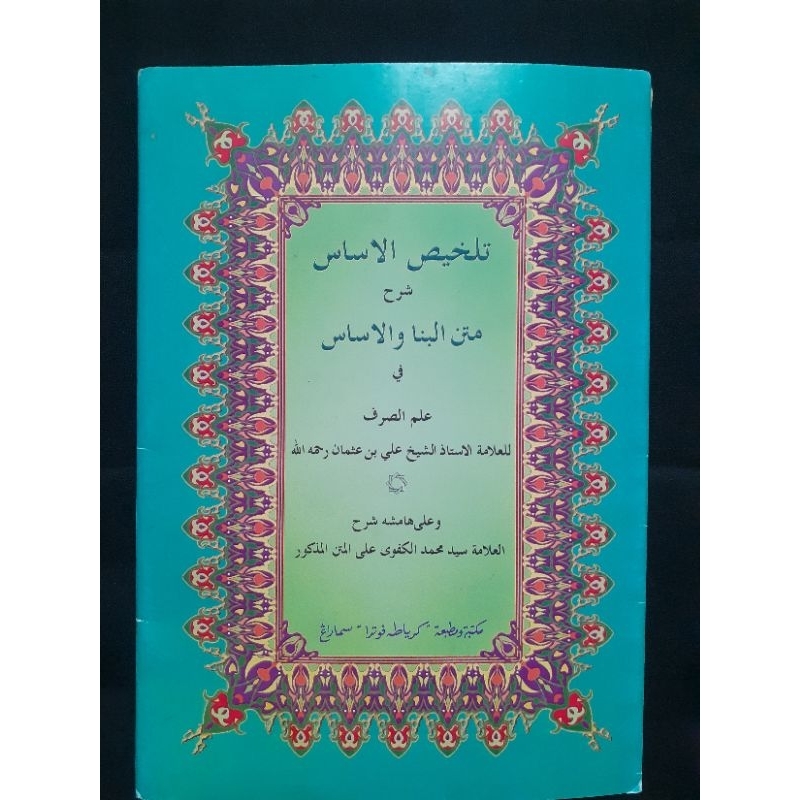 تلخيص الاساس
شرح
متن البنا والاساس
في
علم الصرف
للعلامة الاستاذ الشيخ علي بن عثمان رحمه الله
وعلى هامشه شرح
العلامة سيد محمد الكفوى على المتن المذكور
مكتبة ومطبعة "كرياطه فوترا" سماراڠ